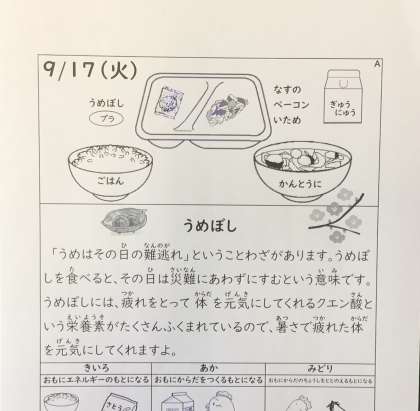 9/17(火)
A
うめぼし
プラ
なすの
ベーコン
いため
ぎゅう
にゅう
ごはん
かんとうに
うめぼし
「うめはその日の難逃れ」ということわざがあります。うめぼ
しを食べると、その日は災難にあわずにすむという意味です。
うめぼしには、疲れをとって体を元気にしてくれるクエン酸と
いう栄養素がたくさんふくまれているので、暑さで疲れた体
を元気にしてくれますよ。
きいろ
あか
みどり
おもにエネルギーのもとになる
おもにからだをつくるもとになる
おもにからだのちょうしをととのえるもとになる
さとう